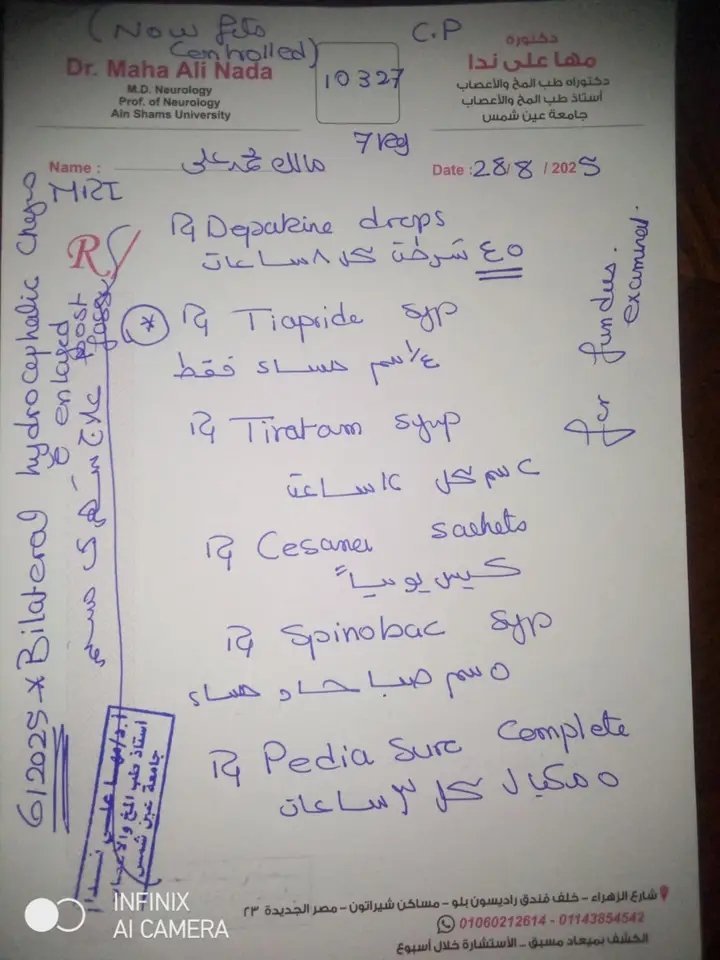 (Now fits
Controlled)
C.P
Dr. Maha Ali Nada
M.D. Neurology
Prof. of Neurology
Ain Shams University
10327
دكتورة
مها على ندا
دكتوراه طب المخ والأعصاب
أستاذ طب المخ والأعصاب
جامعة عين شمس
Name : مالك محمد على
Date :28/8 / 2025
MRI
R/ Depakine drops
٤٥ شرطة كل ٨ ساعات
R/ Tiapride syp
سم مساء فقط
R/ Tiratam syrup
٢ سم كل ١٢ ساعة
R/ Cesanei sachets
كيس يومياً
R/ Spinobac syp
٥ سم صباحا و مساء
R/ Pedia Sure Complete
٥ مكيال كل ٣ ساعات
for fundus.
examined.
6/2025 * Bilateral hydrocephalic changes
enlarged
post
fossa
علاج شهرى
أ.د/مها على نــدا
استاذ طب المخ والأعصاب
جامعة عين شمس
شارع الزهراء – خلف فندق راديسون بلو – مساكن شيراتون – مصر الجديدة ٢٣
01060212614 - 01143854542
الكشف بميعاد مسبق .. الأستشارة خلال أسبوع
INFINIX
AI CAMERA